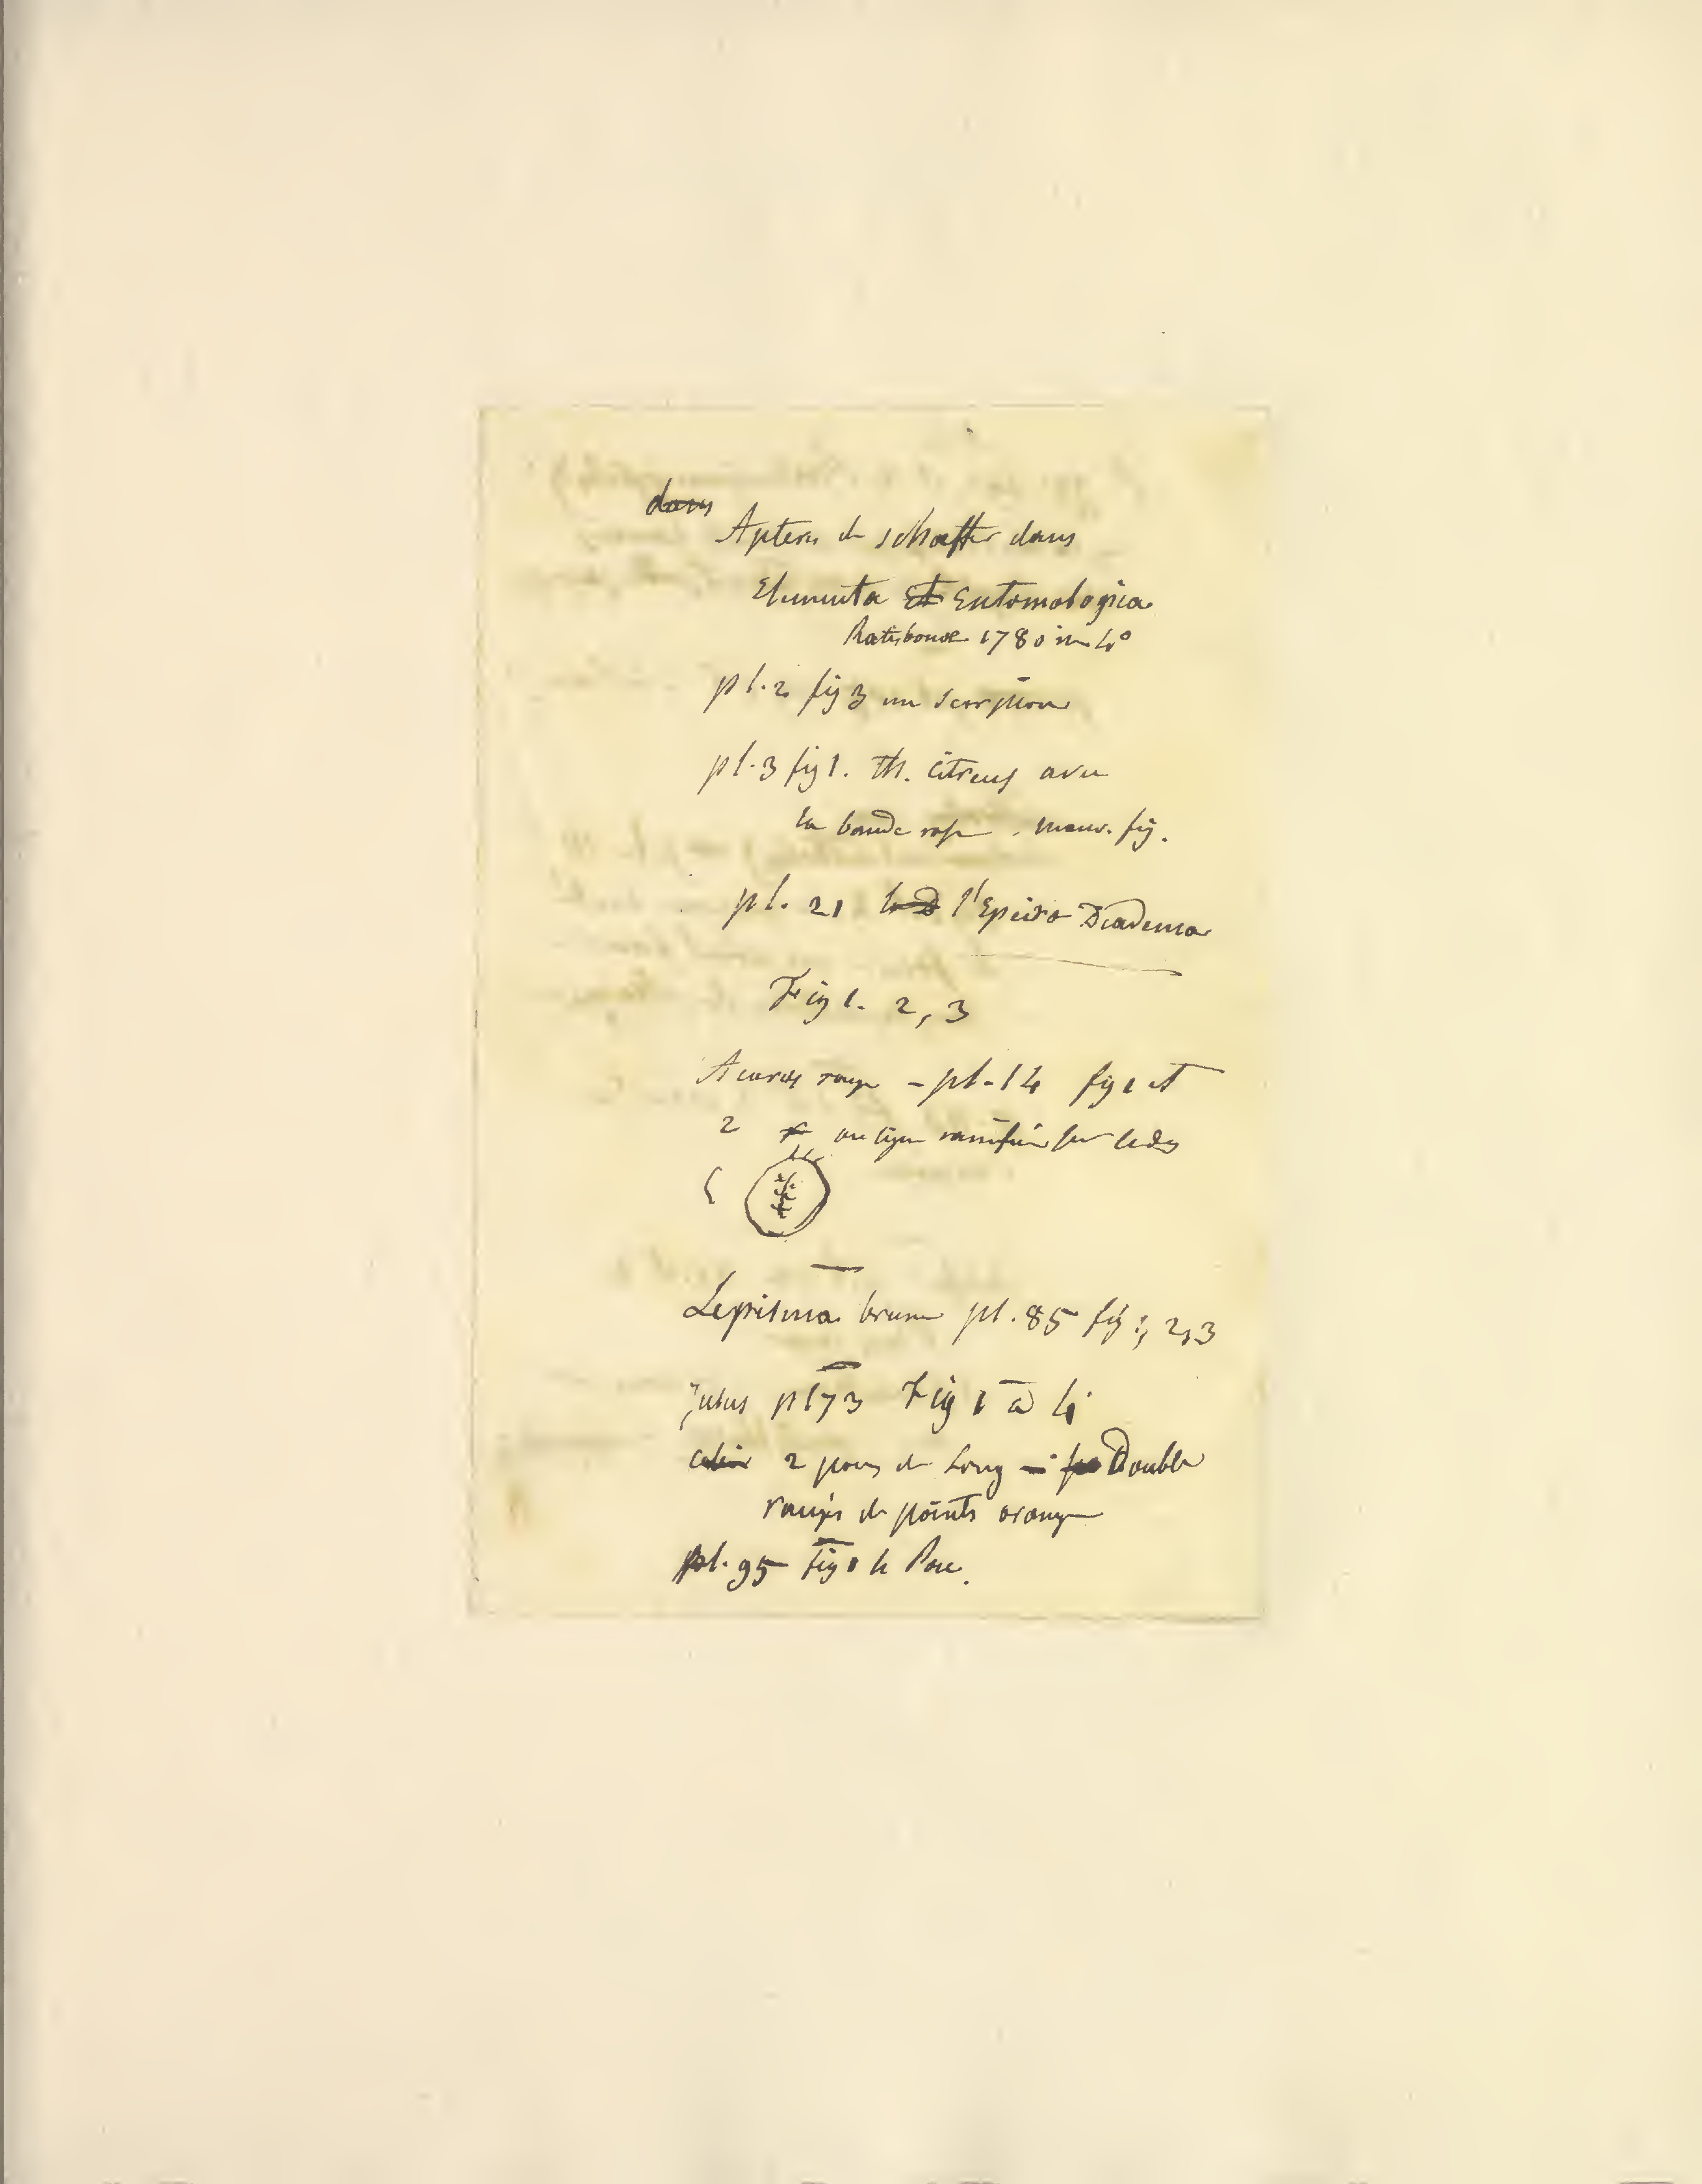 dans
Apteres de schaeffer dans
Elementa Et Entomologica
Ratisbonae 1780 in 4°
pl. 2 fig 3 un scorpion
pl. 3 fig 1. Th. citreus avec
la bande rose . mauv. fig.
pl. 21 l'Epeira Diadema
Fig 1. 2, 3
Acarus rouge - pl. 14 fig 1 et
2 une tigre ramifiée sur le dos
(
Lepisma brun pl. 85 fig 1, 2, 3
Julus pl 73 Fig 1 à 4
2 pouces de Long - Double
rangés de points orange
pl. 95 fig 1 le Pou.